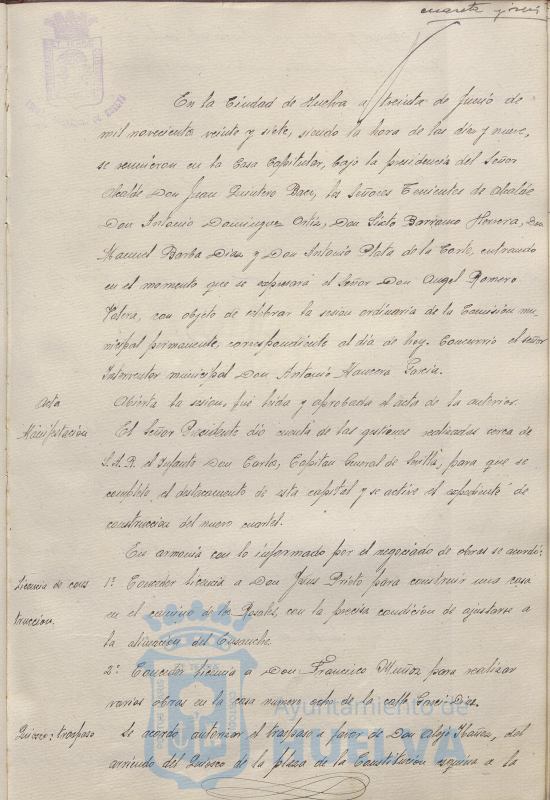 cuarenta y seis
En la Ciudad de Huelva a treinta de Junio de
mil novecientos veinte y siete, siendo la hora de las diez y nueve,
se reunieron en la Casa Capitular, bajo la presidencia del Señor
Alcalde Don Juan Quintero Baez, los Señores Tenientes de Alcalde
Don Antonio Dominguez Ortiz, Don Sixto Barranco Herrera, Don
Manuel Barba Diaz y Don Antonio Plata de la Corte, entrando
en el momento que se expresará el Señor Don Angel Romero
Valera, con objeto de celebrar la sesion ordinaria de la Comisión mu-
nicipal permanente, correspondiente al dia de hoy. Concurrió el señor
Interventor municipal Don Antonio Mancera Garcia.
Acta
Abierta la sesion, fué leida y aprobada el acta de la anterior.
Manifestación
El Señor Presidente dió cuenta de las gestiones realizadas cerca de
S.A.R. el Infante Don Carlos, Capitan General de Sevilla, para que se
complete el destacamento de esta capital y se active el expediente de
construccion del nuevo cuartel.
En armonia con lo informado por el negociado de obras se acordó:
Licencia de cons
truccion.
1º Conceder licencia a Don Jesus Prieto para construir una casa
en el camino de los Rosales, con la precisa condición de ajustarse a
la alineacion del Ensanche.
2º Conceder licencia a Don Francisco Muñoz para realizar
varias obras en la casa numero ocho de la calle
Quiosco: traspaso
Se acordó autorizar el traspaso a favor de Don Alejo Ibañez, del
arriendo del Quiosco de la plaza de la Constitucion esquina a la
Ayuntamiento de
HUELVA